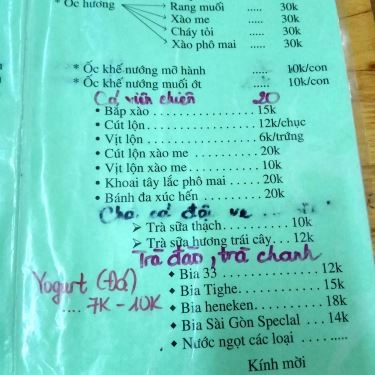 * Ốc hương
Rang muối ..... 30k
Xào me ..... 30k
Cháy tỏi ..... 30k
Xào phô mai ..... 30k
* Ốc khế nướng mỡ hành ..... 10k/con
* Ốc khế nướng muối ớt ..... 10k/con
Cá viên chiên 20
• Bắp xào..................15k
• Cút lộn..................12k/chục
• Vịt lộn..................6k/trứng
• Cút lộn xào me ..........20k
• Vịt lộn xào me..........10k
• Khoai tây lắc phô mai .....20k
• Bánh đa xúc hến ........20k
➤ Trà sữa thạch..........10k
➤ Trà sữa hương trái cây... 12k
Trà đào, trà chanh
Yogurt (Đá)
.... 7K - 10K
♦ Bia 33 ..................12k
♦ Bia Tighe................15k
♦ Bia heneken.............18k
♦ Bia Sài Gòn Speclal ....14k
♦ Nước ngọt các loại .........
Kính mời